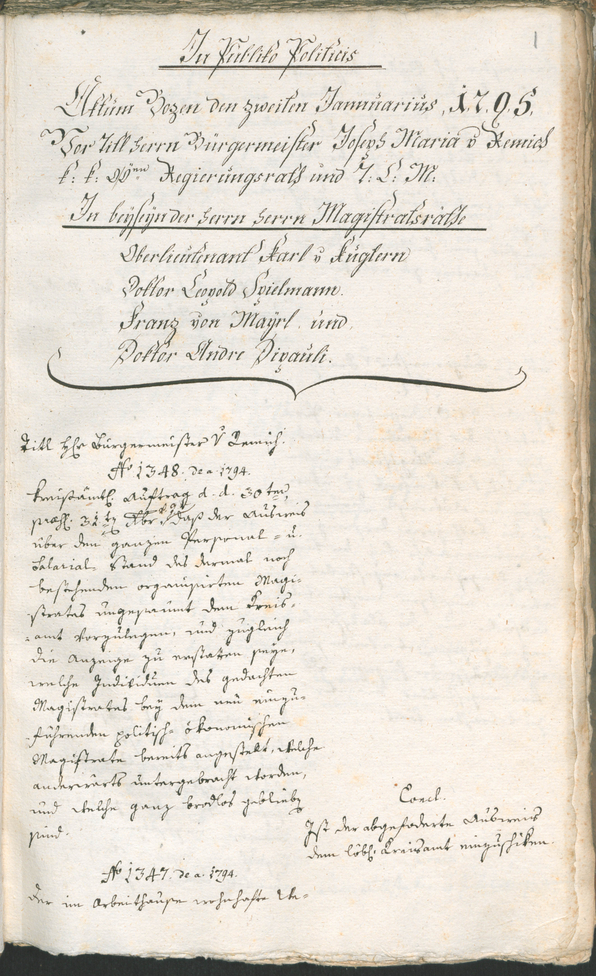 1
In Publiko Politicis
Aktum Bozen den zweiten Jannuarius, 1795.
Vor Titl Herrn Bürgermeister Joseph Maria v Remich
k: k: Regierungsrath und T: L: M:
In beyseyn der Herrn Herrn Magistratsräthe
Oberlieutenant Karl v Kuglern
Doktor Leopold Spielmann.
Franz von Mayrl. und
Doktor Andre Dipauli.
Titl Hr Bürgermeister v Remich.
No 1348. de a. 1794.
Kreisämtl. Auftrag d. d. 30ten,
praes. 31.ten Xbr daß der Ausweis
über den ganzen Personal- u.
Salarial-Stand des dermal noch
bestehenden organisirten Magi-
strates ungesaumt dem Kreis-
-amt vorzulegen, und zugleich
die Anzeige zu erstatten seye,
welche Individuen des gedachten
Magistrates bey dem neu einzu-
führenden politisch-ökonomischen
Magistrate bereits angestelt, welche
anderwärts untergebracht worden,
und welche ganz brodlos geblieben
sind.
Concl.
Ist der abgeforderte Ausweis
dem löbl. Kreisamt einzuschiken.
No 1347. de a. 1794.
Der im Arbeithause wohnhafte We-